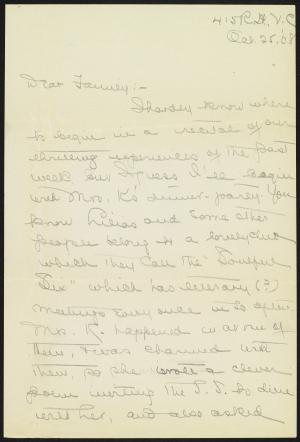 415 R.H., V.C.
Oct. 25, '08
Dear Fanney:-
I hardly know where
to begin in a recital of our
thrilling experiences of the past
week, but I guess I'll begin
with Mrs. K's dinner-party. You
know Lilias and some other
people belong to a lovely club
which they call the "Soulful
Six" which has literary (?)
meetings every once in so often.
Mrs. K. happened in at one of
them, & was charmed with
them, so she wrote a clever
poem inviting the S.S. to dine
with her, and also asked